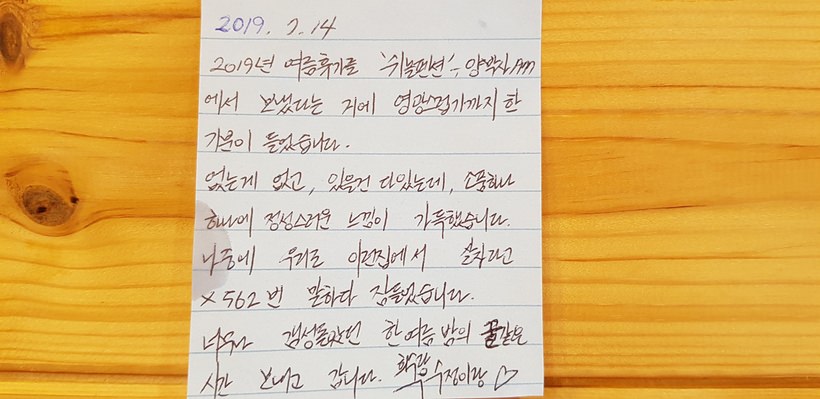 2019. 7. 14
2019년 여름휴가를 '쉬놀펜션' - 양학자AM
에서 보냈다는 거에 영광스럽기까지 한
기분이 들었습니다.
없는게 없고, 있을건 다있는데, 소품하나
하나에 정성스러운 느낌이 가득했습니다.
나중에 우리도 이런집에서 살자라고
×562번 말하다 잠들었습니다.
너무나 감성돋았던 한여름 밤의 꿀같은
시간 보내고 갑니다. 수정이랑 ♡